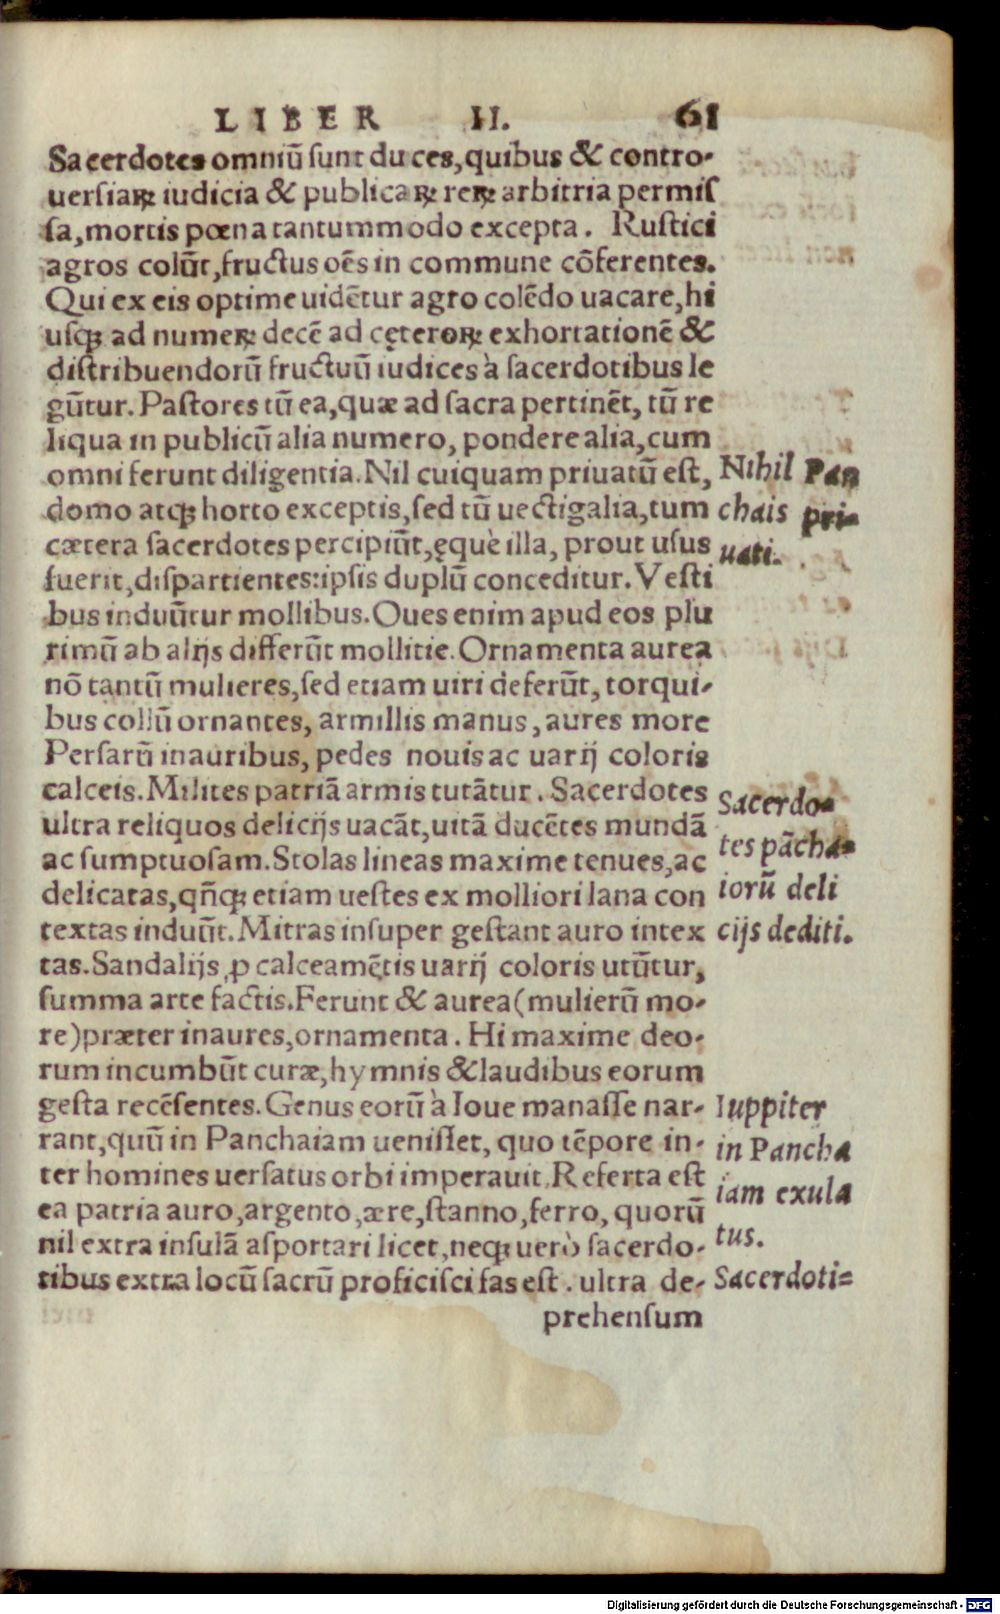 LIBER II. 61
Sacerdotes omniū sunt duces, quibus & contro-
uersiaꝝ iudicia & publicaꝝ reꝝ arbitria permis
sa, mortis pœna tantummodo excepta. Rustici
agros colūt, fructus oēs in commune cōferentes.
Qui ex eis optime uidētur agro colēdo uacare, hi
usqꝫ ad numeꝝ decē ad cęteroꝝ exhortationē &
distribuendorū fructuū iudices à sacerdotibus le
gūtur. Pastores tū ea, quæ ad sacra pertinēt, tū re
liqua in publicū alia numero, pondere alia, cum
omni ferunt diligentia. Nil cuiquam priuatū est,
domo atqꝫ horto exceptis, sed tū uectigalia, tum
cætera sacerdotes percipiūt, ęquè illa, prout usus
fuerit, dispartientes: ipsis duplū conceditur. Vesti
bus induūtur mollibus. Oues enim apud eos plu
rimū ab alijs differūt mollitie. Ornamenta aurea
nō tantū mulieres, sed etiam uiri deferūt, torqui-
bus collū ornantes, armillis manus, aures more
Persarū inauribus, pedes nouis ac uarij coloris
calceis. Milites patriā armis tutātur. Sacerdotes
ultra reliquos delicijs uacāt, uitā ducētes mundā
ac sumptuosam. Stolas lineas maxime tenues, ac
delicatas, qn̄qꝫ etiam uestes ex molliori lana con
textas induūt. Mitras insuper gestant auro intex
tas. Sandalijs ꝓ calceamētis uarij coloris utūtur,
summa arte factis. Ferunt & aurea (mulierū mo-
re) præter inaures, ornamenta. Hi maxime deo-
rum incumbūt curæ, hymnis & laudibus eorum
gesta recēsentes. Genus eorū à Ioue manasse nar-
rant, quū in Panchaiam uenisset, quo tēpore in-
ter homines uersatus orbi imperauit. Referta est
ea patria auro, argento, ære, stanno, ferro, quorū
nil extra insulā asportari licet, neqꝫ uerò sacerdo-
tibus extra locū sacrū proficisci fas est. ultra de-
prehensum
Nihil Pan
chais pri-
uati.
Sacerdo-
tes pācha-
iorū deli
cijs dediti.
Iuppiter
in Pancha
iam exula
tus.
Sacerdoti-
Digitalisierung gefördert durch die Deutsche Forschungsgemeinschaft - DFG